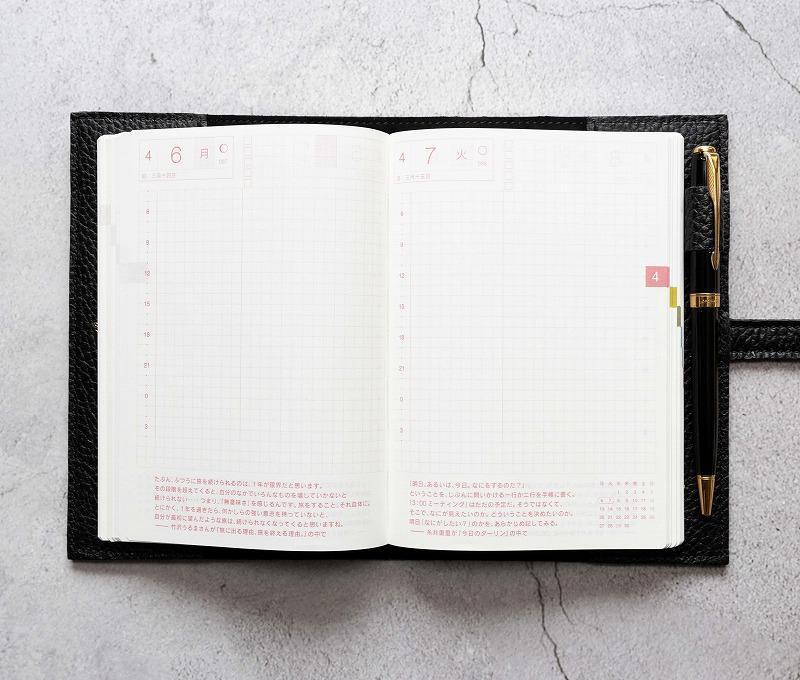 4 6 月
8
12
15
18
21
0
3
たぶん、ふつうに旅を続けられるのは、1年が限界だと思います。
その段階を超えてくると、自分のなかでいろんなものを壊していかないと
続けられない……つまり、「無意味さ」を感じるんです。旅をすること、それ自体に。
とにかく、1年を過ぎたら、何かしらの強い意志を持っていないと、
自分が最初に望んだような旅は、続けられなくなってくると思いますね。
—— 竹沢うるまさんが『旅に出る理由、旅を終える理由。』の中で
4 7 火
8
12
15
18
21
0
3
4
「明日、あるいは、今日。なにをするのだ？」
ということを、じぶんに問いかける一行か二行を手帳に書く。
「3:00ミーティング」はただの予定だ。そうではなくて、
そこで、なにが見えたいのか。どういうことを決めたいのか。
明日「なにがしたい？」のかを、あらかじめ記してみる。
—— 糸井重里が『今日のダーリン』の中で
月 火 水 木 金 土 日
1 2 3 4 5
6 7 8 9 10 11 12
13 14 15 16 17 18 19
20 21 22 23 24 25 26
27 28 29 30